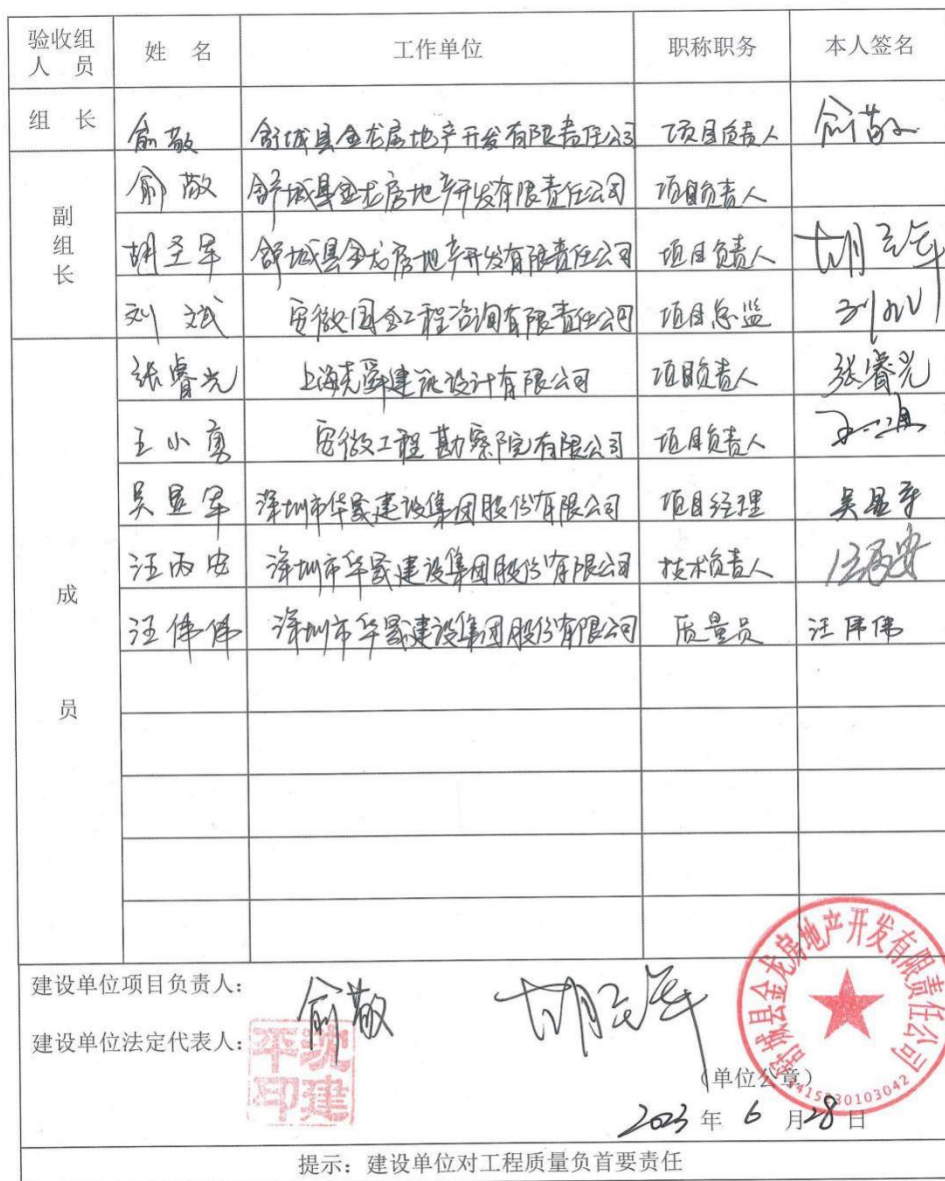 验收组人 员 姓 名 工作单位 职称职务 本人签名
组 长 俞敬 舒城县金龙房地产开发有限责任公司 项目负责人 俞敬
副组长 俞敬 舒城县金龙房地产开发有限责任公司 项目负责人
胡圣军 舒城县金龙房地产开发有限责任公司 项目负责人 胡圣军
刘斌 安徽国金工程咨询有限责任公司 项目总监 刘斌
成员 张睿光 上海尧舜建筑设计有限公司 项目负责人 张睿光
王小勇 安徽工程勘察院有限公司 项目负责人
吴显军 深圳市华晟建设集团股份有限公司 项目经理 吴显军
汪丙安 深圳市华晟建设集团股份有限公司 技术负责人 汪丙安
汪伟伟 深圳市华晟建设集团股份有限公司 质量员 汪伟伟
建设单位项目负责人: 俞敬 胡圣军
建设单位法定代表人: 沈建平印
舒城县金龙房地产开发有限责任公司
(单位公章)
2023 年 6 月 28 日
提示:建设单位对工程质量负首要责任